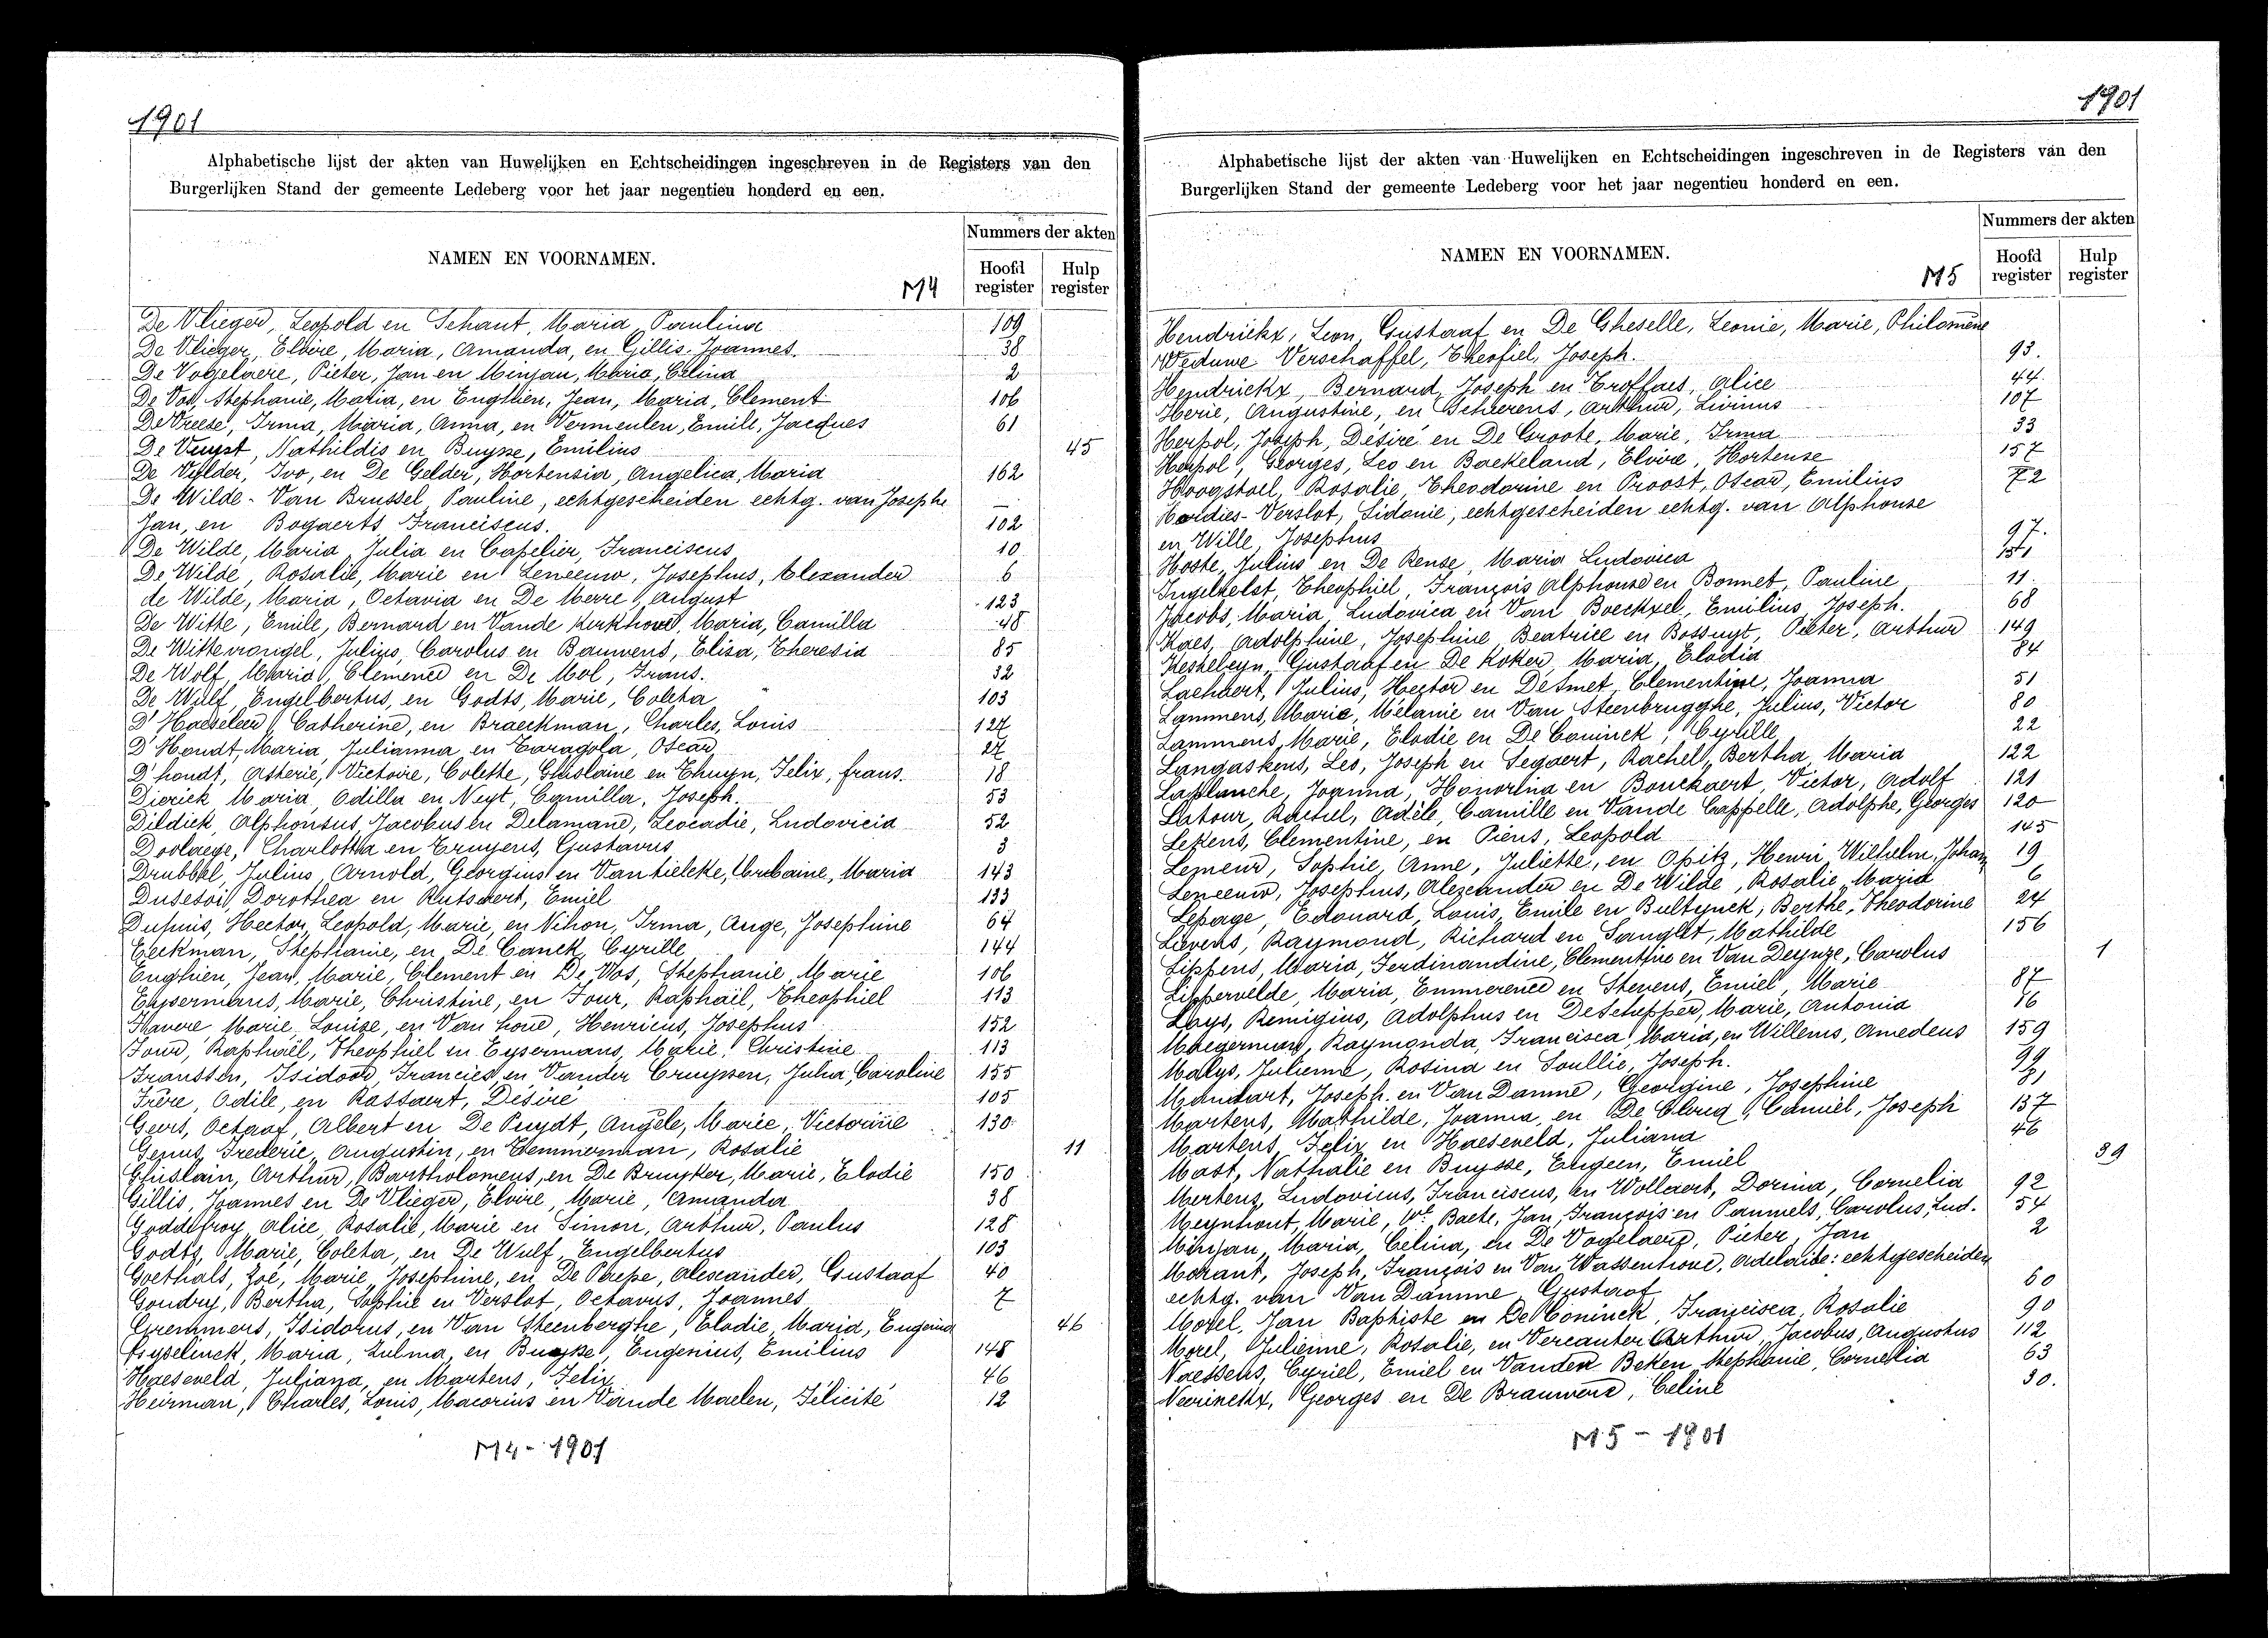 1901
Alphabetische lijst der akten van Huwelijken en Echtscheidingen ingeschreven in de Registers van den
Burgerlijken Stand der gemeente Ledeberg voor het jaar negentien honderd en een.
NAMEN EN VOORNAMEN.
Nummers der akten
Hoofd register
Hulp register
M4
De Vlieger, Leopold en Schant, Maria Paulina 109
De Vlieger, Elvire, Maria, Amanda, en Gillis Joannes. 38
De Vogelaere, Pieter, Jan en Minjau, Maria, Celina 2
De Vos, Stephanie, Maria, en Enghien, Jean, Maria, Clement 106
De Vreese, Irma, Maria, Anna, en Vermeulen, Emile, Jacques 61
De Vuyst, Mathildis en Buysse, Emilius 45
De Vylder, Ivo, en De Gelder, Hortensia, Angelica, Maria 162
De Wilde-Van Brussel, Pauline, echtgescheiden echtg. van Josephe
Jan, en Bogaerts Franciscus. 102
De Wilde, Maria Julia en Capelier, Franciscus 10
De Wilde, Rosalie, Marie en Leneeuw, Josephus, Alexander 6
de Wilde, Maria, Octavia en De Merre, August 123
De Witte, Emile, Bernard en Vande Kerkhove, Maria, Camilla 48
De Wittevrongel, Julius, Carolus en Bauwens, Elisa, Theresia 85
De Wolf, Maria, Clemence en De Mol, Frans. 32
De Wulf, Engelbertus, en Godts, Marie, Coleta 103
D'Haeseleer, Catherine, en Braeckman, Charles, Louis 127
D'Hondt, Maria, Julianna en Taragola, Oscar 27
D'hondt, Astérie, Victoire, Colette, Ghislaine en Thuyn, Felix, frans. 18
Dierick Maria, Odilla en Neyt, Camilla, Joseph. 53
Dildick, Alphonsus Jacobus en Delamane, Leocadie, Ludovicia 52
Doolaege, Charlotta en Truyens, Gustavus 3
Drubbel, Julius, Arnold, Georgius en Vantieleke, Urbaine, Maria 143
Dusesoi, Dorothea en Rutsaert, Emiel 133
Dupuis, Hector, Leopold, Marie, en Nihon, Irma, Ange, Josephine 64
Eeckman, Stephanie, en De Canck, Cyrille 144
Enghien, Jean, Marie, Clement en De Vos, Stephanie, Marie 106
Eysermans, Marie, Christine, en Four, Raphaël, Theophiel 113
Havere, Marie, Louise, en Van hove, Henricus, Josephus 152
Four, Raphaël, Theophiel en Eysermans, Marie, Christine 113
Franssen, Isidoor, Francies en Vander Cruyssen, Julia, Caroline 155
Frère, Odile, en Rassaert, Désiré 105
Geers, Octaaf, Albert en De Puydt, Angèle, Marie, Victorine 130
Genus, Frederic, Augustin, en Hemmerman, Rosalie 11
Ghislain, Arthur, Bartholomeus, en De Bruyker, Marie, Elodie 150
Gillis, Joannes en De Vlieger, Elvire, Marie, Amanda 38
Goddefroy, Alice, Rosalie, Marie en Simon, Arthur, Paulus 128
Godts, Marie, Coleta, en De Wulf, Engelbertus 103
Goethals, Zoé, Marie, Josephine, en De Paepe, Alexander, Gustaaf 40
Goudry, Bertha, Sophie en Verslot, Octavus, Joannes 7
Gremmers, Isidorus, en Van Steenberghe, Elodie, Maria, Eugenia 46
Gyselinck, Maria, Zulma, en Buyse, Eugenius, Emilius 148
Haeseveld, Juliana, en Martens, Felix 46
Heirman, Charles, Louis, Macorius en Vande Maelen, Felicité 12
M4 - 1901
1901
Alphabetische lijst der akten van Huwelijken en Echtscheidingen ingeschreven in de Registers van den
Burgerlijken Stand der gemeente Ledeberg voor het jaar negentien honderd en een.
NAMEN EN VOORNAMEN.
Nummers der akten
Hoofd register
Hulp register
M5
Hendrickx, Leon, Gustaaf en De Gheselle, Leonie, Marie, Philomène
Weduwe Verschaffel, Theofiel, Joseph. 93.
Hendrickx, Bernard, Joseph en Troffaes, Alice 44
Herie, Augustine, en Beheerens, Arthur, Livinus 107
Herpol, Joseph, Désiré en De Groote, Marie, Irma 33
Herpol, Georges, Leo en Baekeland, Elvire, Hortense 157
Hoogstoel, Rosalie, Theodorine en Proost, Oscar, Emilius 72
Hordies-Verslot, Sidonie, echtgescheiden echtg. van Alphonse
en Wille, Josephus 97.
Hoste, Julius en De Rense, Maria Ludovica 151
Ingelhelst, Theophiel, François Alphonse en Bonnet, Pauline 11
Jacobs, Maria, Ludovica en Van Boeckxel, Emilius, Joseph. 68
Kaes, Adolphine, Josephine, Beatrice en Bossuyt, Pieter, Arthur 149
Kesheleyn, Gustaaf en De Koker, Maria, Elodia 84
Lachaert, Julius, Hector en De Smet, Clementine, Joanna 51
Lammens, Marie, Mélanie en Van Steenbrugghe, Julius, Victor 80
Lammens, Marie, Elodie en De Coninck, Cyrille 22
Langaskens, Leo, Joseph en Segaert, Rachel, Bertha, Maria 122
Laplanche, Joanna, Honorina en Bouckaert, Victor, Adolf 121
Latour, Rachel, Adèle, Camille en Vande Cappelle, Adolphe, Georges 120
Lekens, Clementine, en Piens, Leopold 145
Lemeur, Sophie, Anne, Juliette, en Opitz, Henri, Wilhelm, Johan 19
Leneeuw, Josephus, Alexander en De Wilde, Rosalie, Maria 6
Lepage, Edouard, Louis, Emile en Bultynck, Berthe, Theodorine 24
Lievens, Raymond, Richard en Sanglet, Mathilde 156
Lippens, Maria, Ferdinandine, Clementine en Van Deynze, Carolus 1
Lippervelde, Maria, Emmerence en Stevens, Emiel, Marie 87
Loys, Remigius, Adolphus en De Schepper, Marie, Antonia 16
Maegerman, Raymonda, Francisca, Maria, en Willems, Amedeus 159
Malys, Julienne, Rosina en Soullie, Joseph. 99
Mandart, Joseph. en Van Damme, Georgine, Josephine 81
Martens, Mathilde, Joanna, en De Clerq, Camiel, Joseph 137
Martens, Felix en Haeseveld, Juliana 46
Mast, Nathalie en Buysse, Eugeen, Emiel 39
Mertens, Ludovicus, Franciscus, en Wollaert, Dorina, Cornelia 92
Meynhout, Marie, We Baete, Jan, François en Pauwels, Carolus, Lud. 54
Minjau, Maria, Celina, en De Vogelaere, Pieter, Jan 2
Morant, Joseph, François en Van Wassenhove, Adelaïde: echtgescheiden
echtg. van Van Damme, Gustaaf 60
Morel, Jan Baptiste en De Coninck, Francisca, Rosalie 90
Morel, Julienne, Rosalie, en Vercauter, Arthur, Jacobus, Augustus 112
Naessens, Cyriel, Emiel en Vander Beken, Stephanie, Cornelia 63
Neirinckx, Georges en De Brauwere, Celine 30.
M5 - 1901